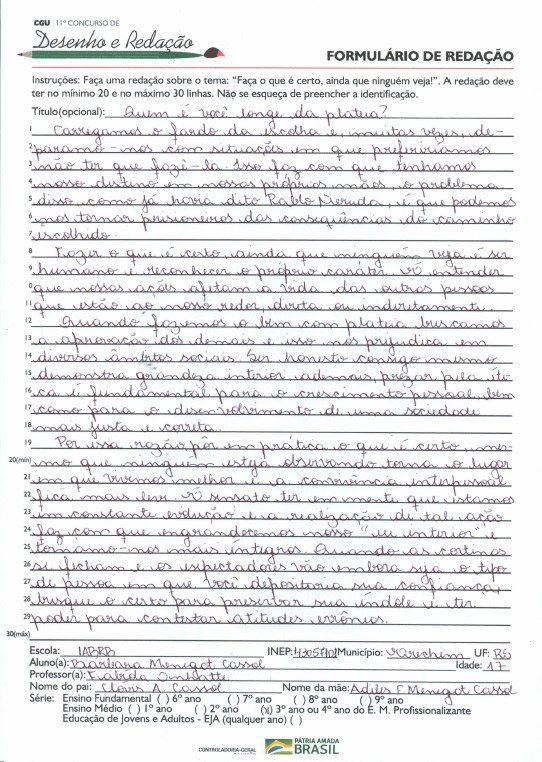 CGU | 11º CONCURSO DE
Desenho e Redação
FORMULÁRIO DE REDAÇÃO
Instruções: Faça uma redação sobre o tema: "Faça o que é certo, ainda que ninguém veja!". A redação deve
ter no mínimo 20 e no máximo 30 linhas. Não se esqueça de preencher a identificação.
Título(opcional): Quem é você longe da plateia?
1 Carregamos o fardo da escolha e, muitas vezes, de-
2 paramo-nos com situações em que preferiríamos
3 não ter que fazê-la. Isso faz com que tenhamos
4 nosso destino em nossas próprias mãos, o problema
5 disso, como já havia dito Pablo Neruda, é que podemos
6 nos tornar prisioneiros das consequências do caminho
7 escolhido.
8 Fazer o que é certo, ainda que ninguém veja é ser
9 humano e reconhecer o próprio caráter. É entender
0 que nossas ações afetam a vida das outras pessoas
11 que estão ao nosso redor, direta ou indiretamente.
12 Quando fazemos o bem com plateia buscamos
13 a aprovação dos demais e isso nos prejudica em
14 diversos âmbitos sociais. Ser honesto consigo mesmo
15 demonstra grandeza interior, ademais, prezar pela éti-
16 ca é fundamental para o crescimento pessoal, bem
17 como para o desenvolvimento de uma sociedade
18 mais justa e correta.
19 Por essa razão, pôr em prática o que é certo, mes-
20(mín) mo que ninguém esteja observando torna o lugar
21 em que vivemos melhor e a convivência interpessoal
22 fica mais leve. É sensato ter em mente que estamos
23 em constante evolução e a realização de tal ação
24 faz com que engrandecemos nosso "eu interior" e
25 tornamo-nos mais íntegros. Quando as cortinas
26 se fecham e os espectadores vão embora seja o tipo
27 de pessoa em que você depositaria sua confiança,
28 busque o certo para preservar sua índole e ter
29 poder para contestar atitudes errôneas.
30(máx)
Escola: IABRB INEP: Município: Erechim UF: RS
Aluno(a): Bárbara Menegot Cassol Idade: 17
Professor(a):
Nome do pai: Clovis A. Cassol Nome da mãe: Adiles T Menegot Cassol
Série: Ensino Fundamental ( ) 6º ano ( ) 7º ano ( ) 8º ano ( ) 9º ano
Ensino Médio ( ) 1º ano ( ) 2º ano (x) 3º ano ou 4º ano do E. M. Profissionalizante
Educação de Jovens e Adultos - EJA (qualquer ano) ( )
CONTROLADORIA-GERAL
PÁTRIA AMADA
BRASIL